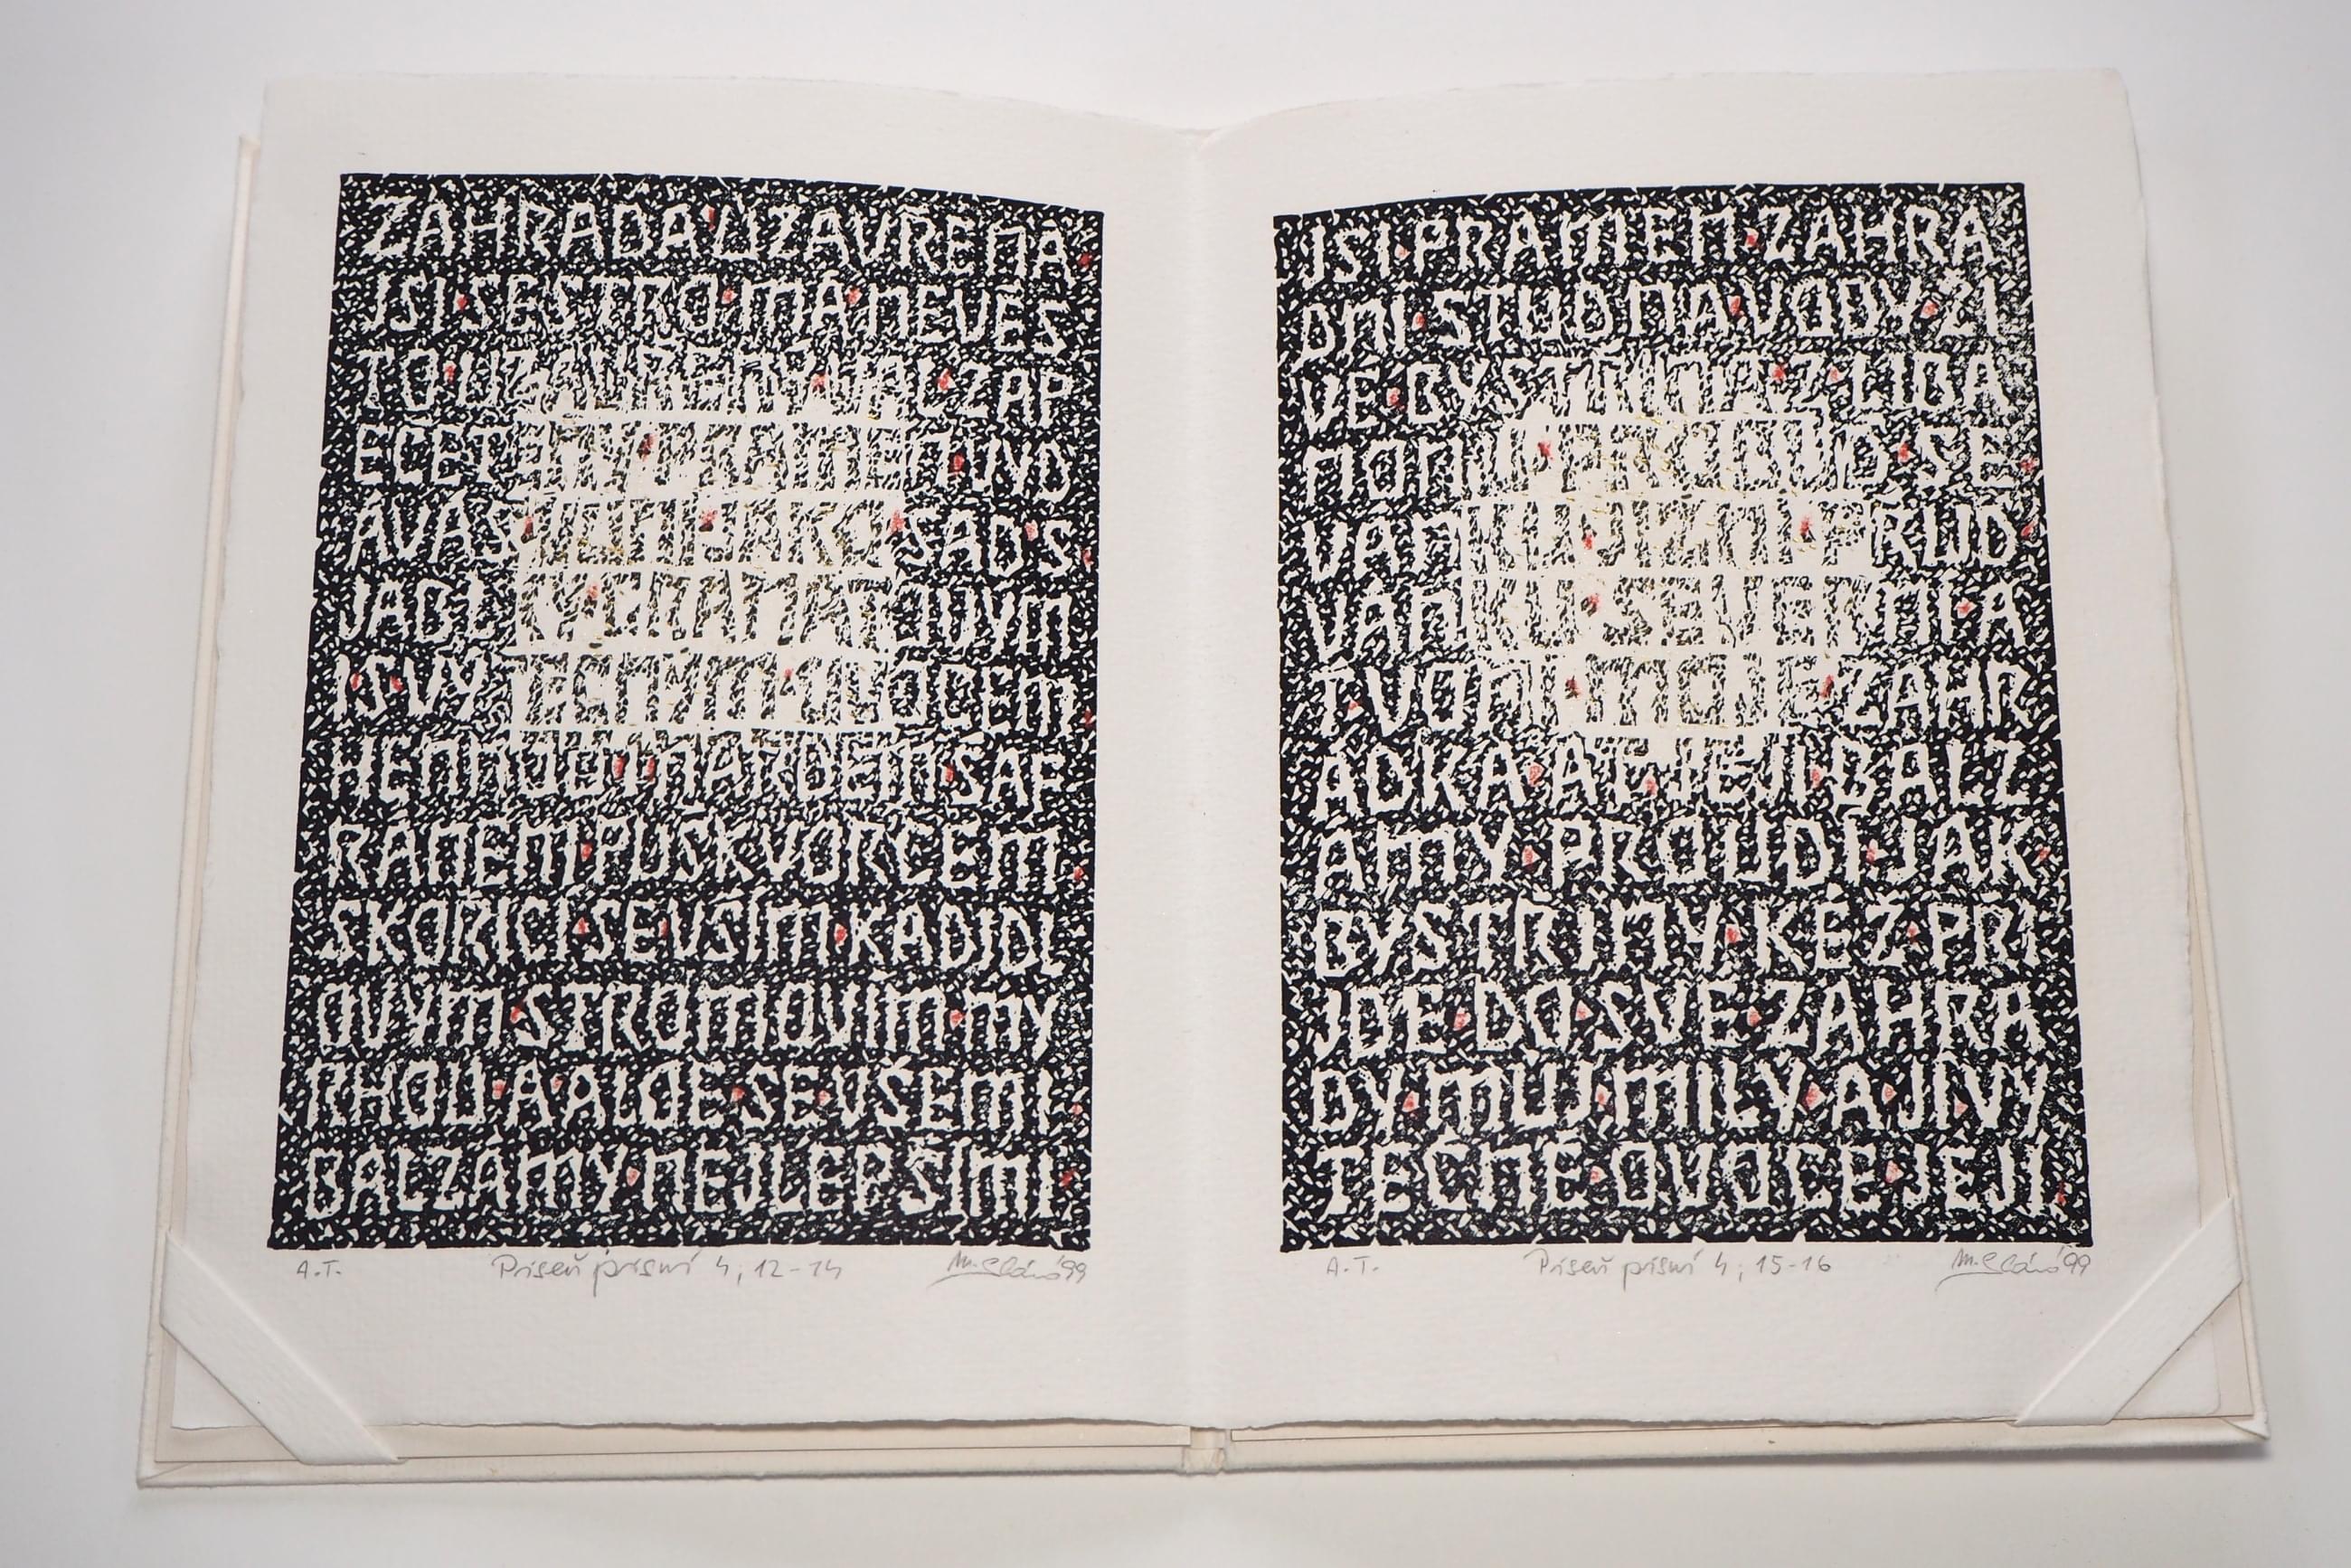 ZAHRADA·UZAVŘENA·
JSI·SESTRO·MÁ·NEVĚS
TO·UZAVŘENÝ·VAL·ZAP
EČETĚNÝ·PRAMEN·TVD
AVÁŠ·VŮNI·JAKO·SAD·S·
JABLKY·GRANÁTOVÝM
I·S·VÝTEČNÝM·OVOCEM
HENNOU·I·NARDEM·ŠAF
RÁNEM·PUŠKVORCEM·
SKOŘICÍ·SE·VŠÍM·KADIDL
OVÝM·STROMOVÍM·MY
RHOU·A·ALOE·SE·VŠEMI·
BALZÁMY·NEJLEPŠÍMI·
A.T. Píseň písní 4, 12-14 '99
JSI·PRAMEN·ZAHRA
DNÍ·STUDNA·VODY·ŽI
VÉ·BYSTŘINA·Z·LIBA
NONU·PROBUĎ·SE·
VÁNKU·JIŽNÍ·PŘIJĎ·
VÁNKU·SEVERNÍ·A
Ť·VONÍ·MOJE·ZAHR
ÁDKA·AŤ·JEJÍ·BALZ
ÁMY·PROUDÍ·JAK·
BYSTŘINY·KÉŽ·PŘI
JDE·DO·SVÉ·ZAHRA
DY·MŮJ·MILÝ·A·JÍ·VÝ
TEČNÉ·OVOCE·JEJÍ·
A.T. Píseň písní 4, 15-16 '99